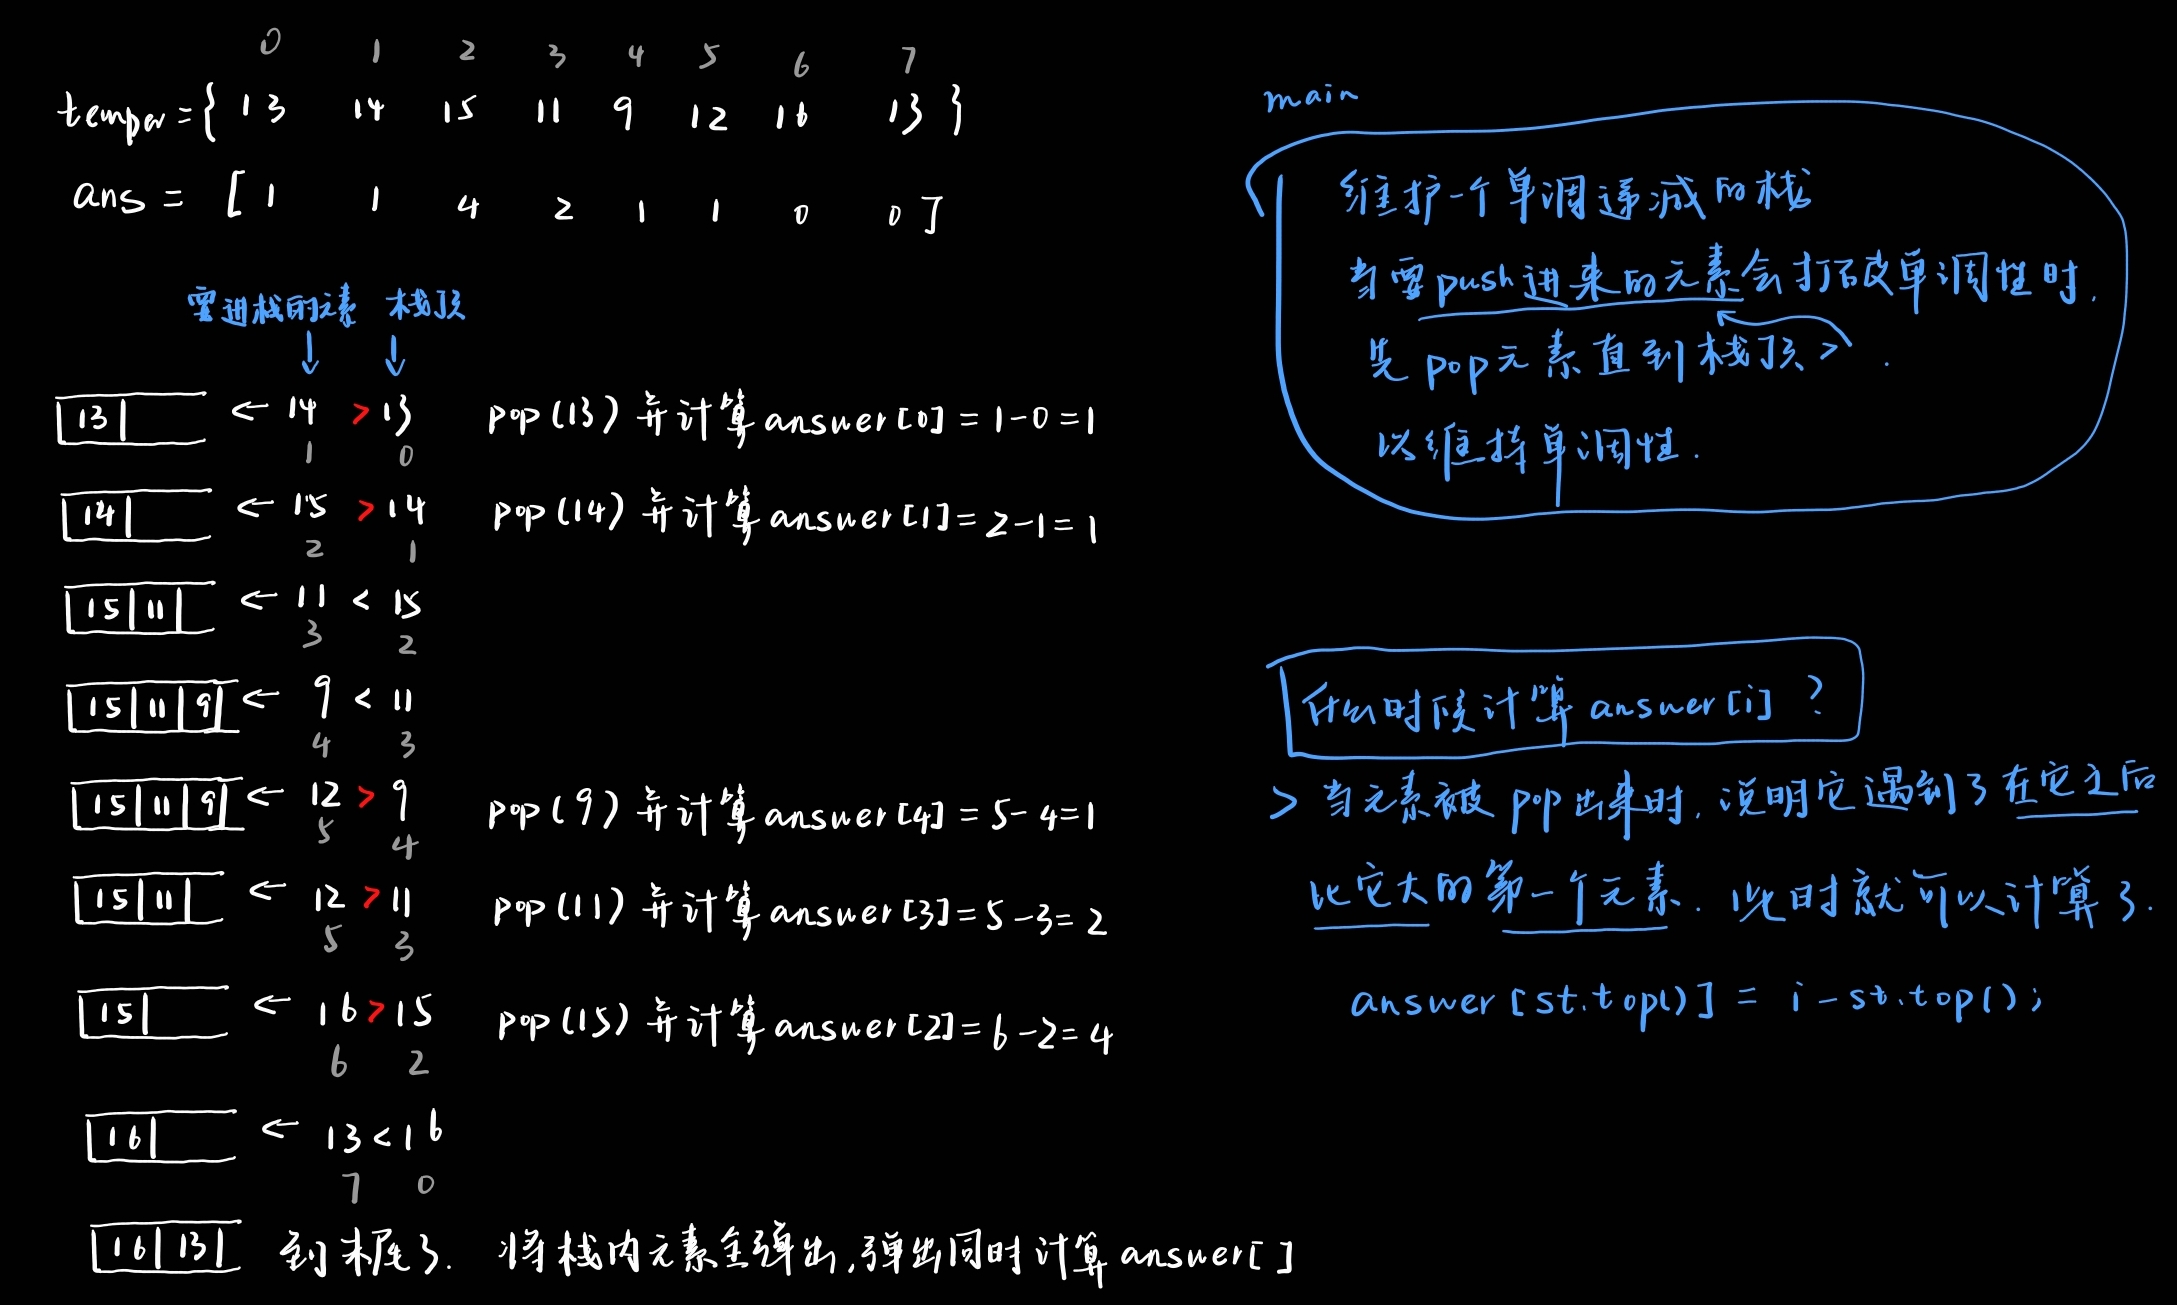 0 1 2 3 4 5 6 7
temper={ 13 14 15 11 9 12 16 13 }
ans = [ 1 1 4 2 1 1 0 0 ]
要进栈的元素 栈顶
13 ← 14 > 13 pop(13) 并计算 answer[0] = 1-0 = 1
1 0
14 ← 15 > 14 pop(14) 并计算 answer[1] = 2-1 = 1
2 1
15 11 ← 11 < 15
3 2
15 11 9 ← 9 < 11
4 3
15 11 9 ← 12 > 9 pop(9) 并计算 answer[4] = 5-4=1
5 4
15 11 ← 12 > 11 pop(11) 并计算 answer[3] = 5-3= 2
5 3
15 ← 16 > 15 pop(15) 并计算 answer[2] = 6-2= 4
6 2
16 ← 13 < 16
7 0
16 13 到末尾了. 将栈内元素全弹出,弹出同时计算 answer[ ]
main
维护一个单调递减的栈
当要push进来的元素会打破单调性时,
先pop元素直到栈顶 > .
以维持单调性.
什么时候计算 answer[i] ?
> 当元素被 pop 出来时, 说明它遇到了在它之后
比它大的第一个元素. 此时就可以计算了.
answer[st.top()] = i-st.top();